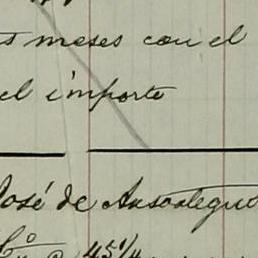 s meses con el
el importe
José de Ansoategui
45 1/4